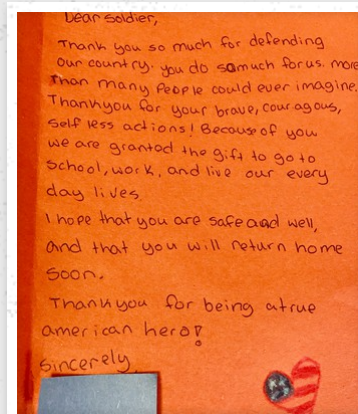 Dear Soldier,
Thank you so much for defending
our country. you do somuch forus. more
Than many People could ever imagine.
Thankyou for your brave, couragous,
self less actions! Because of you
we are granted the gift to go to
school, work, and live our every
day lives.
I hope that you are safe and well,
and that you will return home
soon.
Thankyou for being atrue
american hero!
Sincerely,